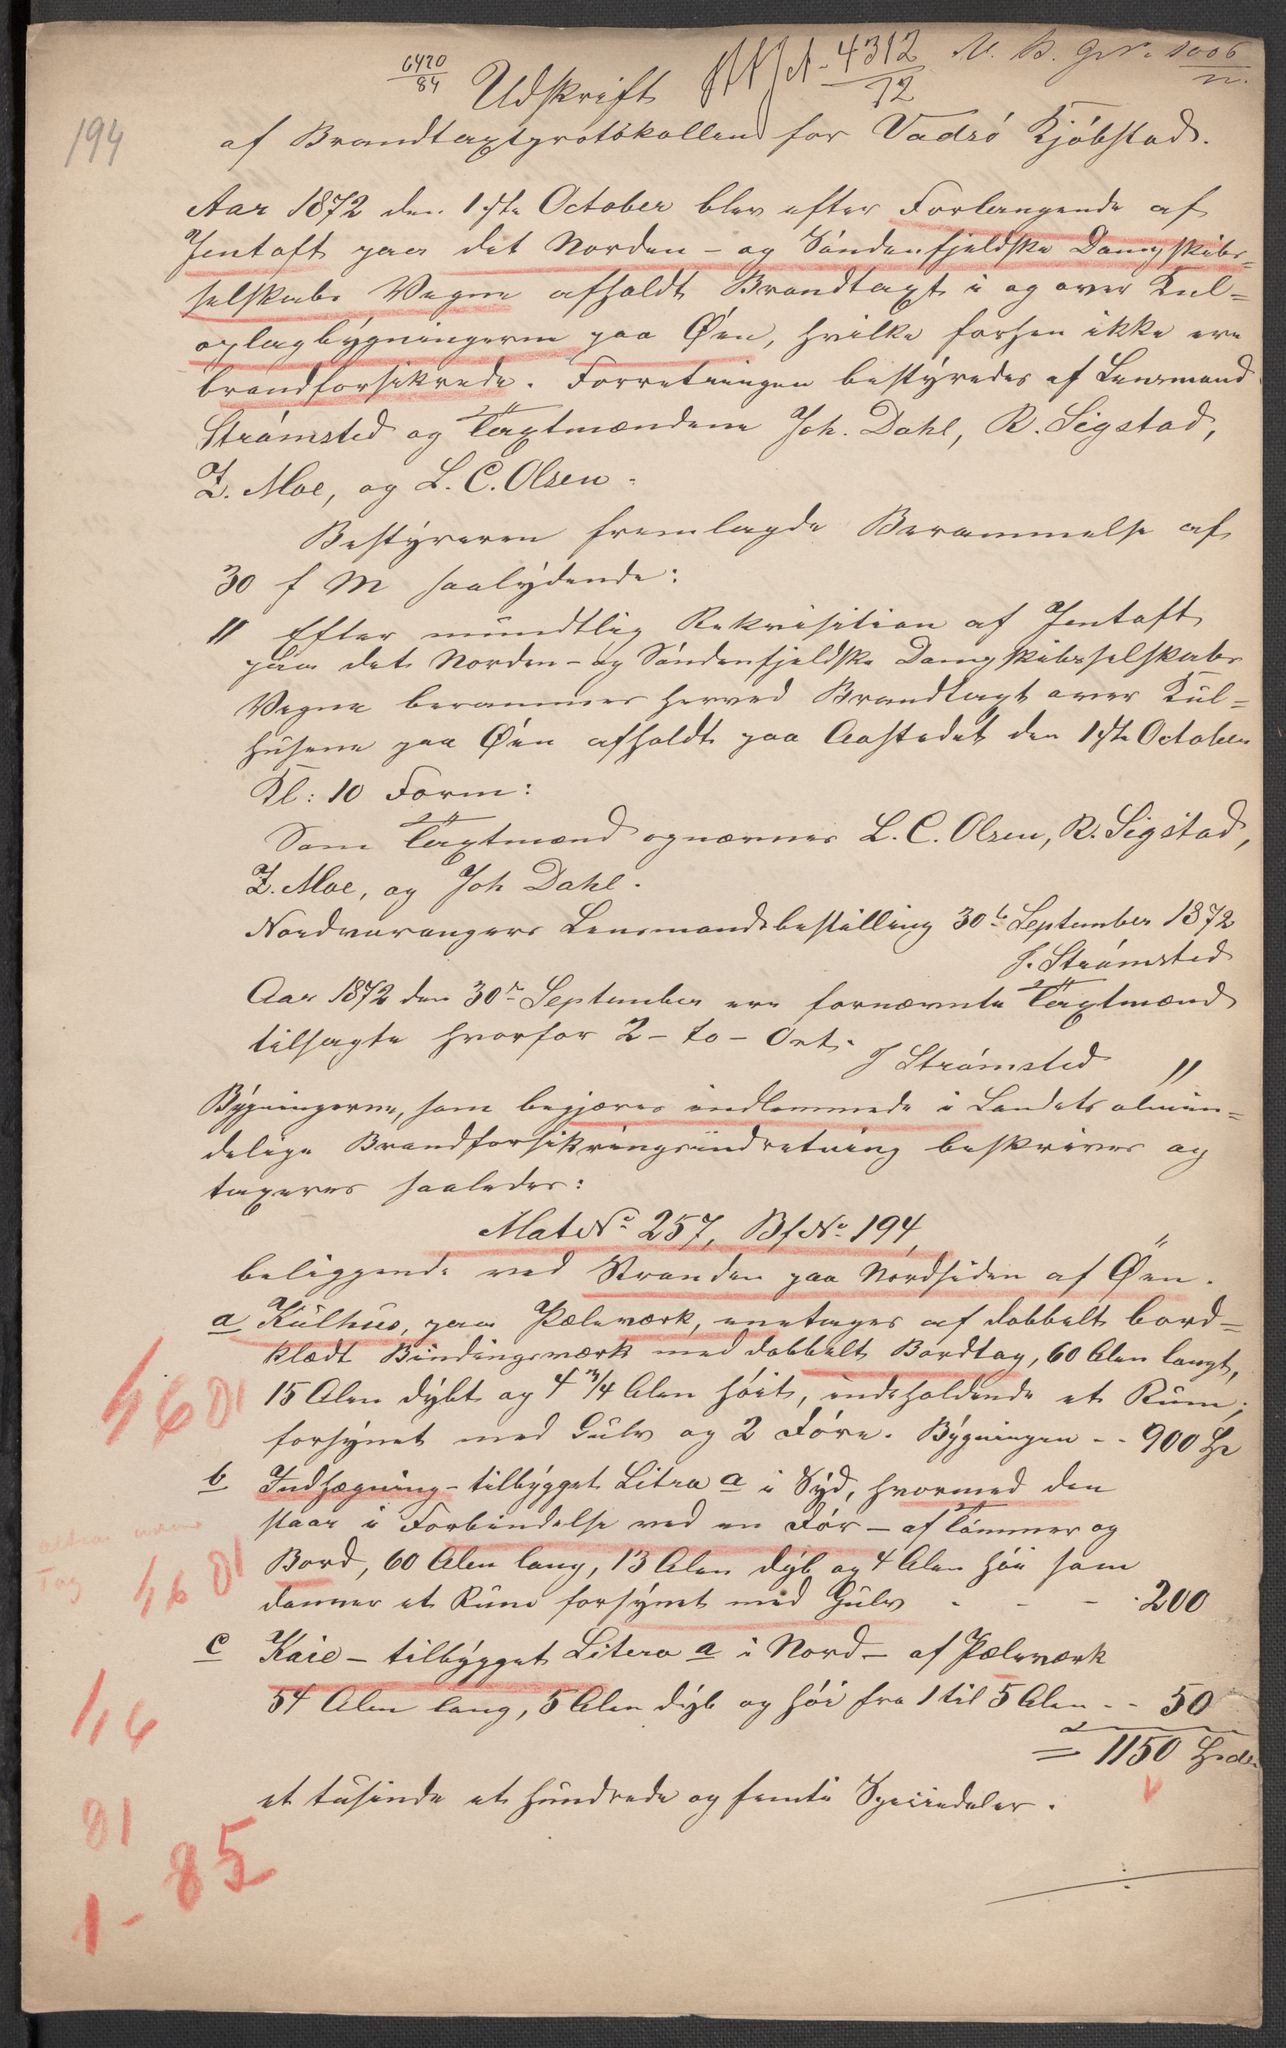 6420/84
4312/72
1006
194
Udskrift
af Brandtaxtprotokollen for Vadsö Kjöbstad.
Aar 1872 den 1ste October blev efter Forlangende af
Jentoft paa det Norden- og Söndenfjeldske Dampskibs-
selskabs Vegne afholdt Brandtaxt i og over Kul-
oplagbygningerne paa Øen, hvilke forhen ikke ere
brandforsikrede. Forretningen bestyredes af Lensmand
Strömsted og Taxtmændene Joh. Dahl, R. Sigstad,
Z. Moe, og L. C. Olsen.
Bestyreren fremlagde Berammelse af
30 f M saalydende:
" Efter mundtlig Rekvisition af Jentoft
paa det Norden- og Söndenfjeldske Dampskibsselskabs
Vegne berammes herved Brandtaxt over Kul-
husene paa Øen afholdt paa Aastedet den 1ste October
Kl: 10 Form:
Som Taxtmænd opnævnes L. C. Olsen, R. Sigstad,
Z. Moe, og Joh Dahl.
Nordvarangers Lensmandsbestilling 30te September 1872
J. Strömsted
Aar 1872 den 30te September ere fornævnte Taxtmænd
tilsagte hvorfor 2 - to - Ort.
J Strömsted "
Bygningerne, som begjæres indlemmede i Landets almin-
delige Brandforsikringsindretning beskrives og
taxeres saaledes:
Mat No 257, Bf No 194,
beliggende ved Stranden paa Nordsiden af Øen.
a Kulhus, paa Pæleværk, enetages af dobbelt bord-
klædt Bindingsværk med dobbelt Bordtag, 60 Alen langt,
15 Alen dybt og 4 3/4 Alen höit, indeholdende et Rum,
forsynet med Gulv og 2 Döre. Bygningen - - 900 Sp
b Indhægning - tilbygget Litra a i Syd, hvormed den
staar i Forbindelse ved en Dör - af Tömmer og
Bord, 60 Alen lang, 13 Alen dyb og 4 Alen höi som
danner et Rum forsynet med Gulv - - - 200
c Kaie - tilbygget Litera a i Nord - af Pæleværk
54 Alen lang, 5 Alen dyb og höi fra 1 til 5 Alen - - 50
= 1150 Spdlr
et tusinde et hundrede og femti Speciedaler.
Tag
81
1 - 85